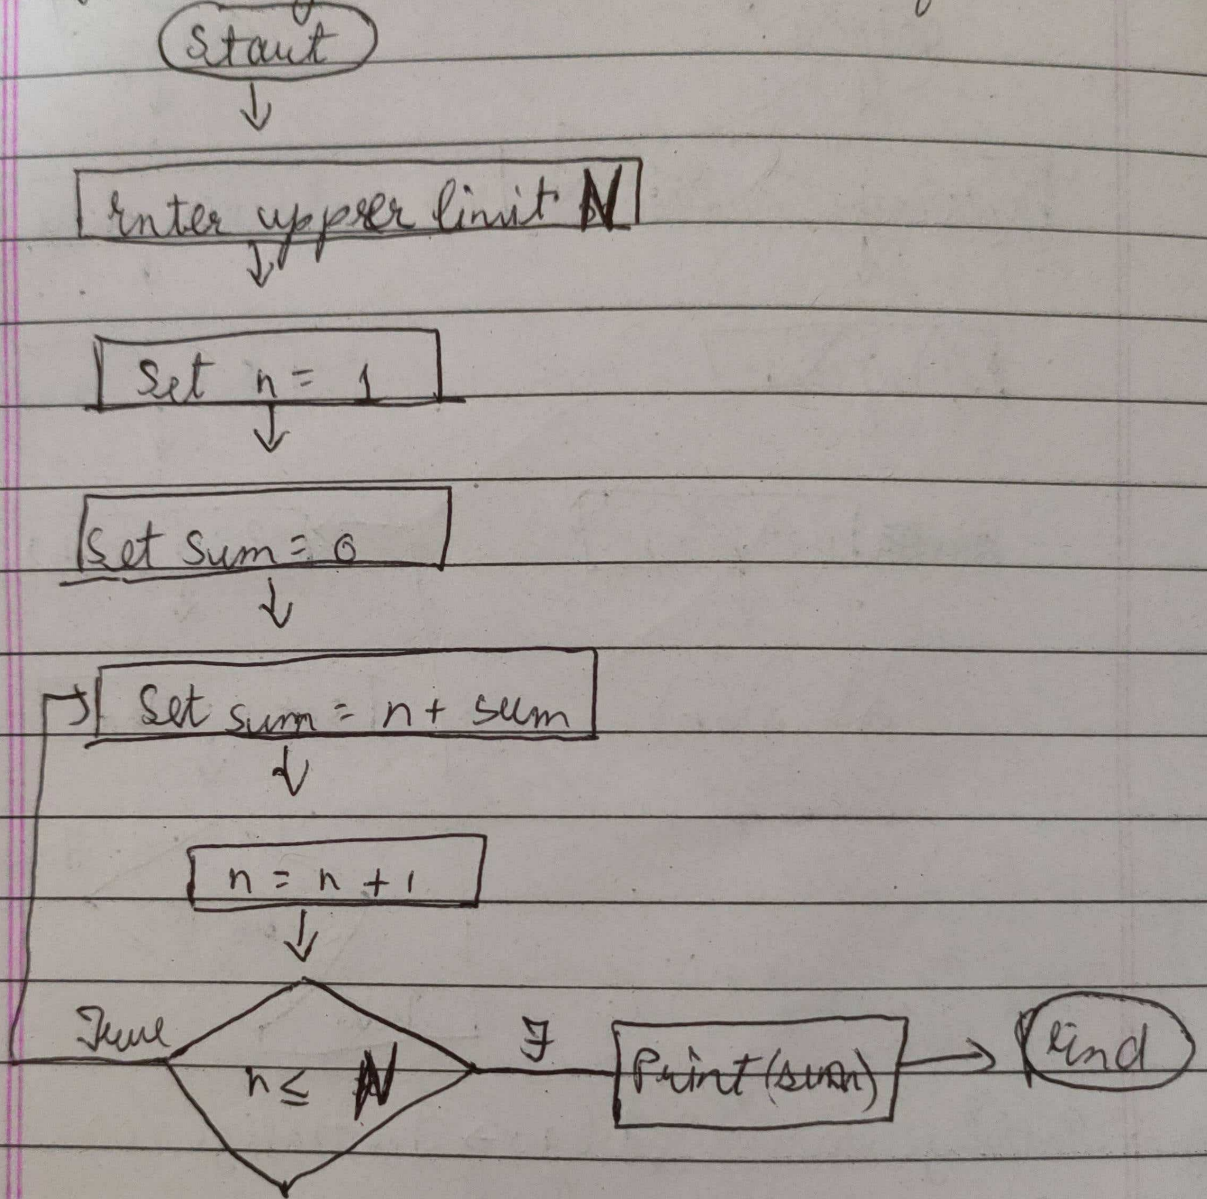 Start
Enter upper limit N
Set n = 1
Set sum = 0
Set sum = n + sum
n = n + 1
True
n ≤ N
F
Print (sum)
End